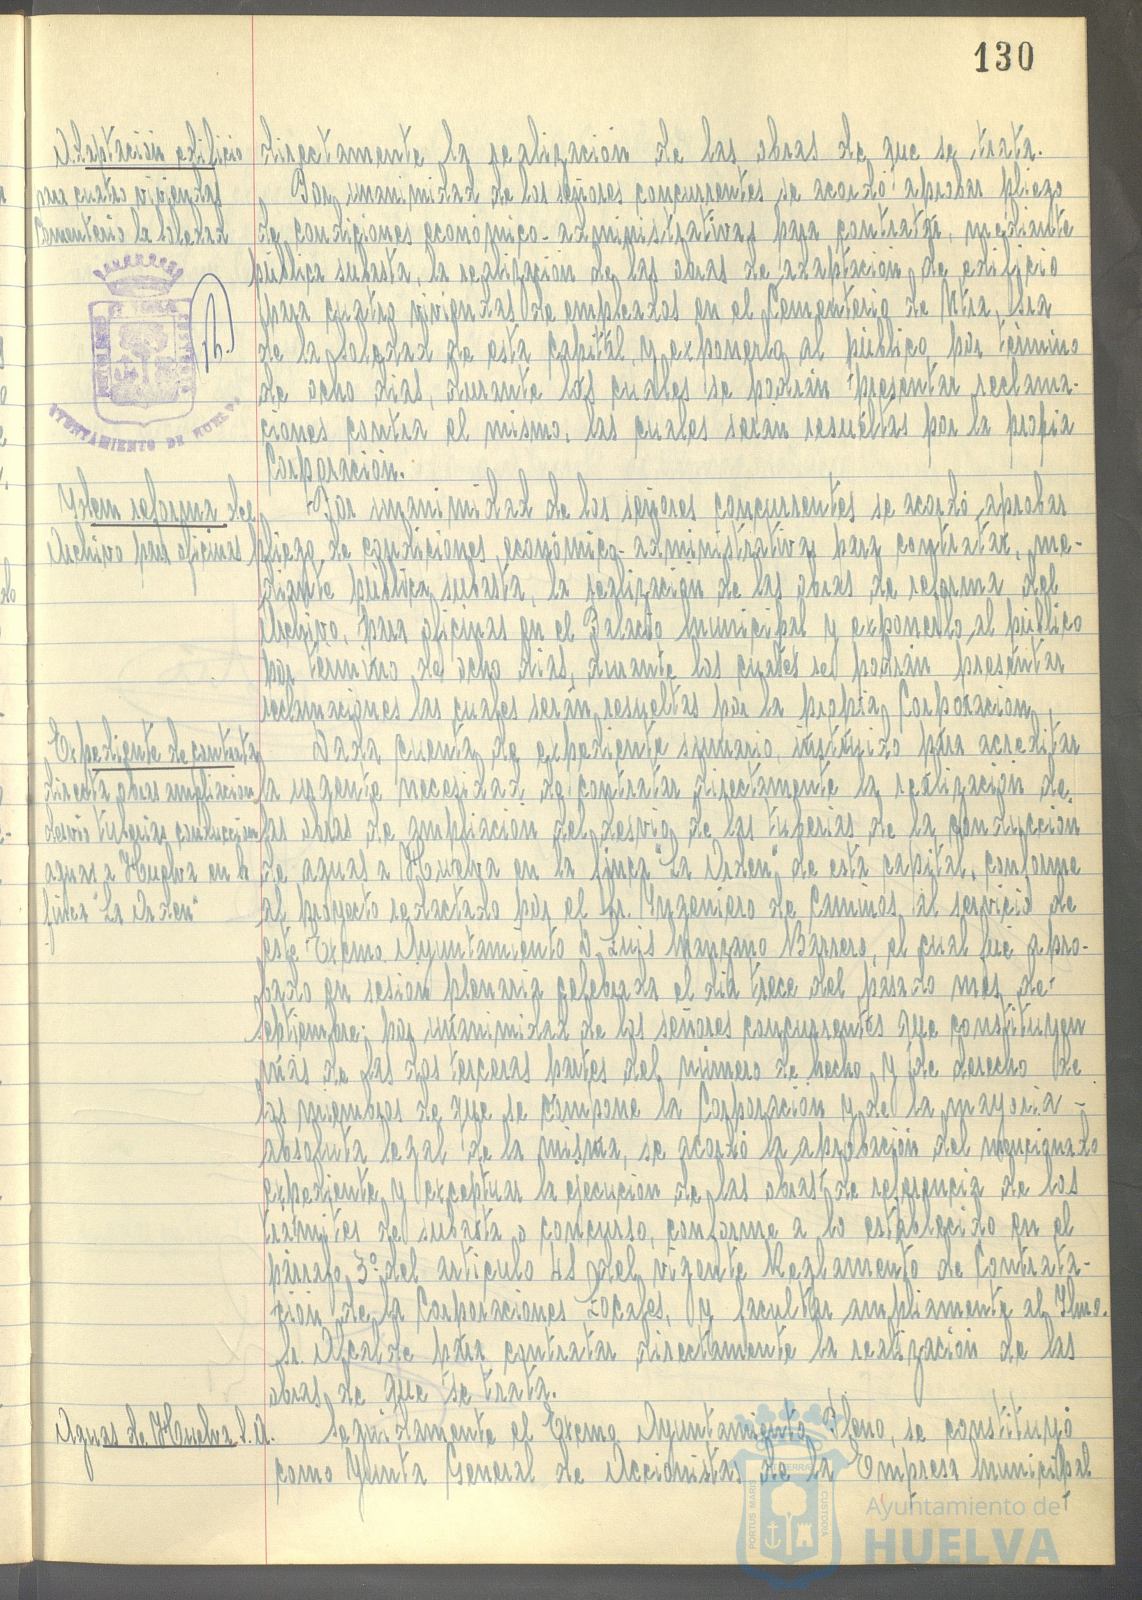 130
Adaptación edificio
para cuatro viviendas
Cementerio la Soledad
directamente la realización de las obras de que se trata.
Por unanimidad de los señores concurrentes se acordó aprobar pliego
de condiciones económico-administrativas para contratar, mediante
pública subasta, la realización de las obras de adaptación de edificio
para cuatro viviendas de empleados en el Cementerio de Ntra. Sra
de la Soledad de esta capital, y exponerlo al público, por término
de ocho días, durante los cuales se podrán presentar reclama-
ciones contra el mismo, las cuales serán resueltas por la propia
Corporación.
AYUNTAMIENTO DE HUELVA
Ydem reforma del
Archivo para oficinas
Por unanimidad de los señores concurrentes se acordó aprobar
pliego de condiciones económico-administrativas para contratar, me-
diante pública subasta, la realización de las obras de reforma del
Archivo, para oficinas en el Palacio Municipal y exponerlo al público
por término de ocho días, durante los cuales se podrán presentar
reclamaciones las cuales serán resueltas por la propia Corporación.
Expediente de contrata
directa obras ampliación
desvío tuberías conducción
aguas a Huelva en la
finca "La Orden"
Dada cuenta de expediente sumario, instruido para acreditar
la urgente necesidad de contratar directamente la realización de
las obras de ampliación del desvío de las tuberías de la conducción
de aguas a Huelva en la finca "La Orden" de esta capital, conforme
al proyecto redactado por el Sr. Yngeniero de Caminos al servicio de
este Excmo. Ayuntamiento D. Luis Manzano Barrero, el cual fué apro-
bado en sesión plenaria celebrada el día trece del pasado mes de
septiembre; por unanimidad de los señores concurrentes que constituyen
más de las dos terceras partes del número de hecho y de derecho de
los miembros de que se compone la Corporación y de la mayoría
absoluta legal de la misma, se acordó la aprobación del mencionado
expediente y exceptuar la ejecución de las obras de referencia de los
trámites de subasta o concurso, conforme a lo establecido en el
párrafo 3º del artículo 41 del vigente Reglamento de Contrata-
ción de la Corporaciones Locales, y facultar ampliamente al Ylmo.
Sr. Alcalde para contratar directamente la realización de las
obras de que se trata.
Aguas de Huelva S.A.
Seguidamente el Excmo Ayuntamiento Pleno, se constituyó
como Junta General de Accionistas de la Empresa Municipal
PORTUS MARIS
CUSTODIA
Ayuntamiento de
HUELVA